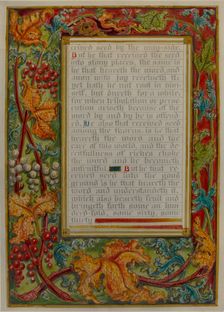 ceived seed by the way-side.
But he that received the seed
into stony places, the same is
he that heareth the word, and
anon with joy receiveth it;
yet hath he not root in him-
self, but dureth for a while:
for when tribulation or perse-
cution ariseth because of the
word by and by he is offend-
ed. He also that received seed
among the thorns is he that
heareth the word; and the
care of this world, and the de-
ceitfulness of riches choke
the word, and he becometh
unfruitful. But he that re-
ceived seed into the good
ground is he that heareth the
word, and understandeth it;
which also beareth fruit, and
bringeth forth, some an hun-
dredfold, some sixty, some
thirty